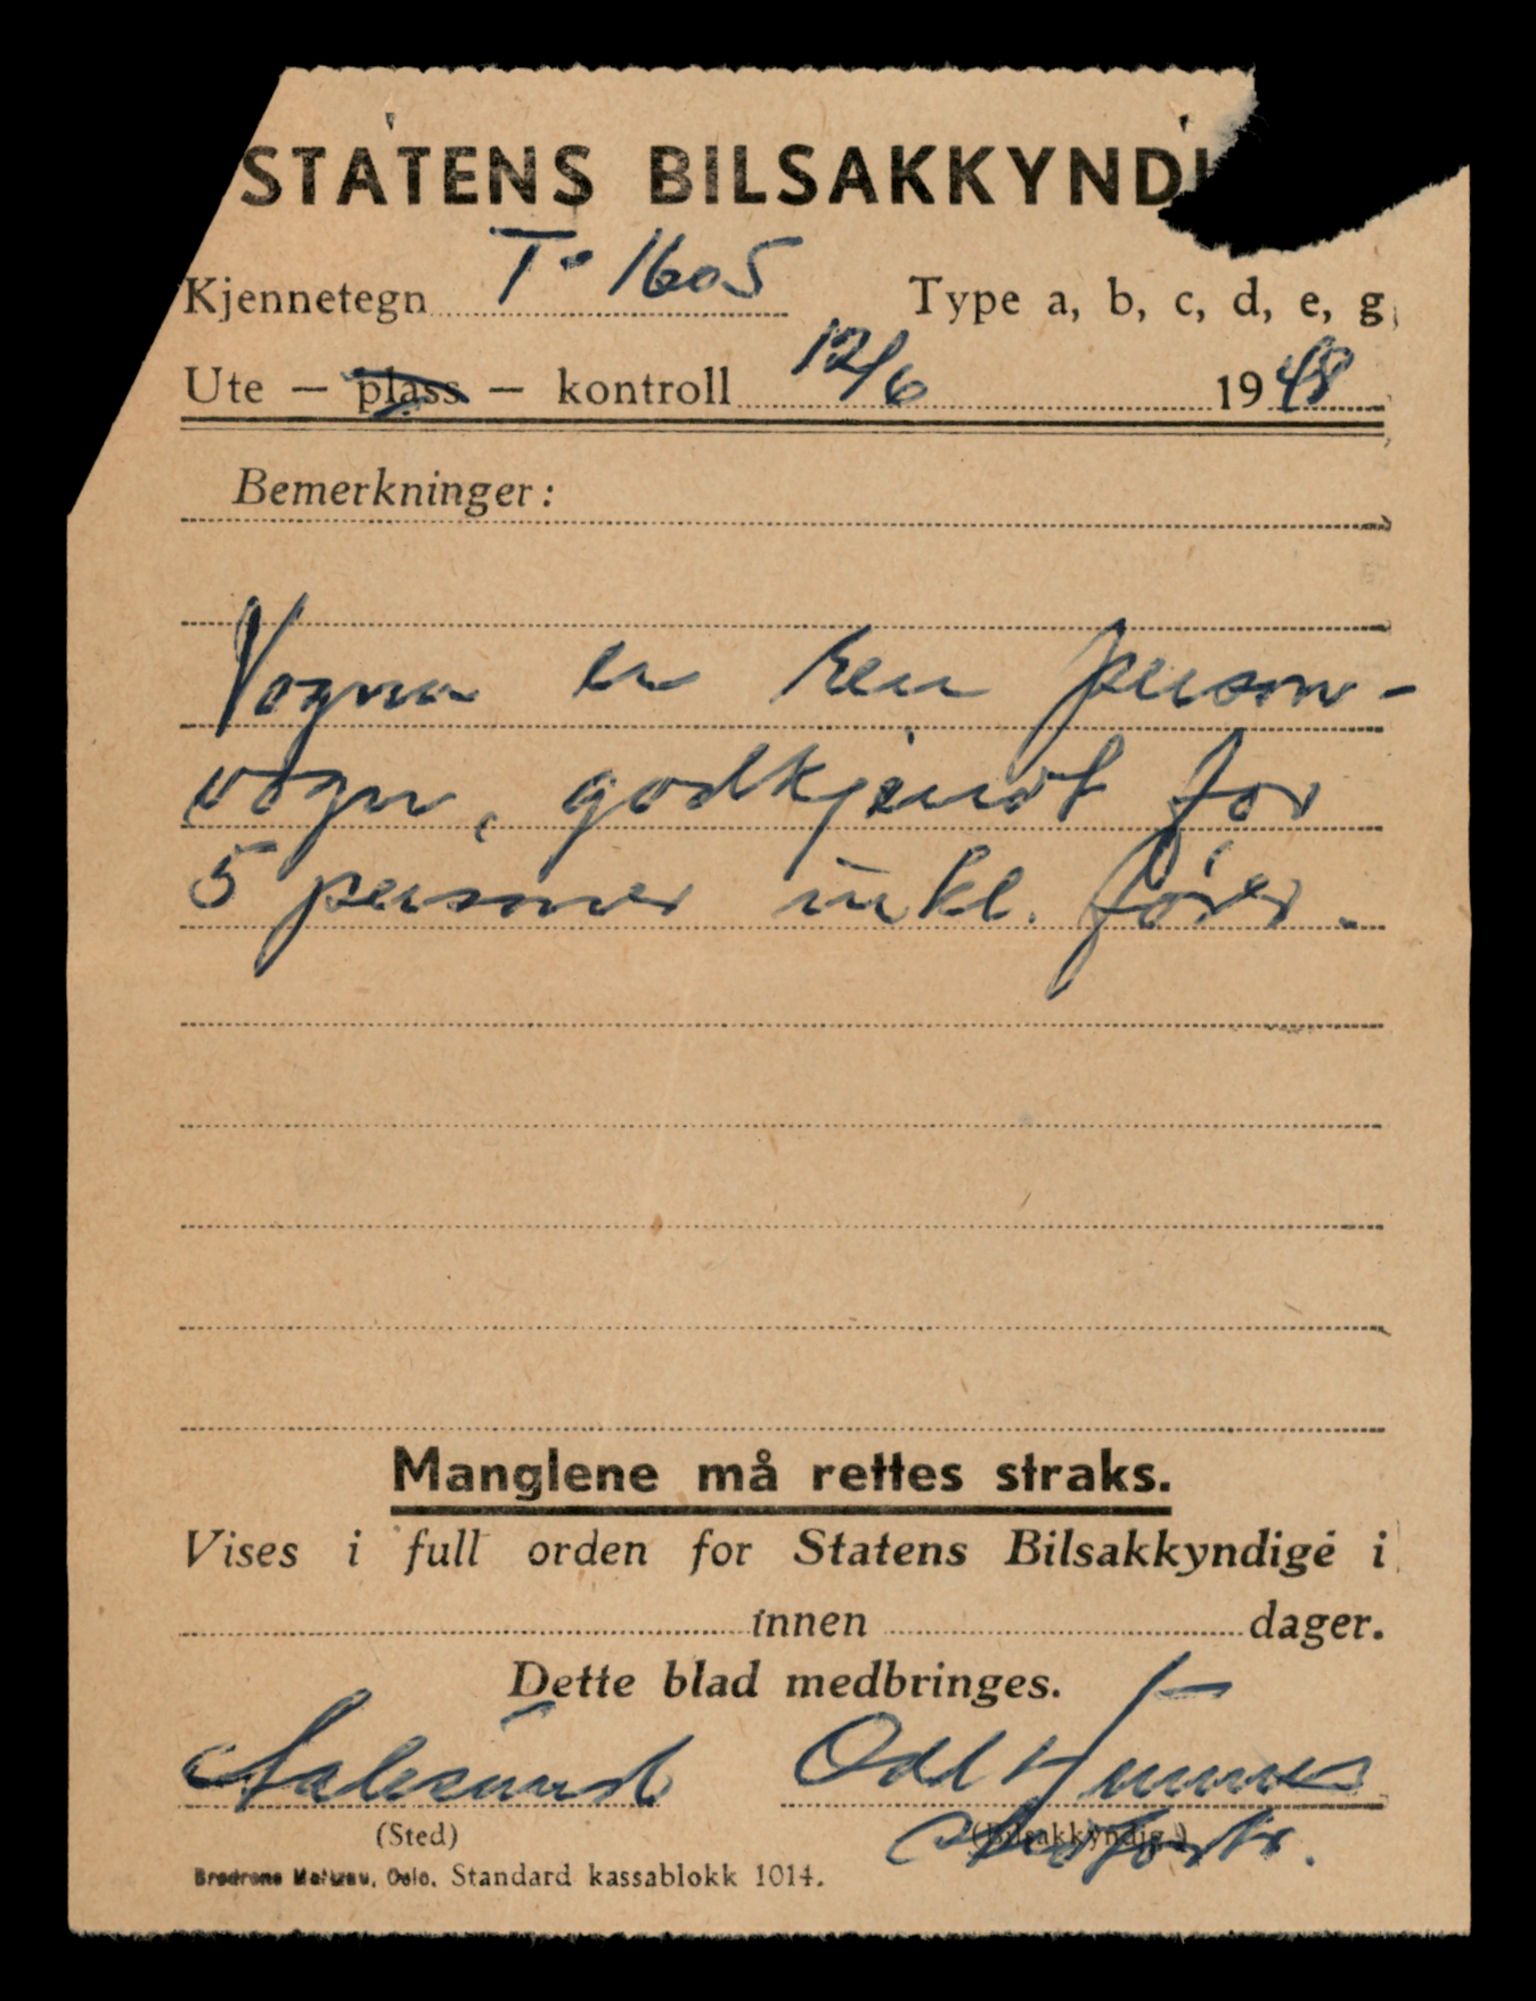 STATENS BILSAKKYND
Kjennetegn T-1605 Type a, b, c, d, e, g
Ute — plass — kontroll 12/6 1948
Bemerkninger:
Vogna er ren person-
vogn, godkjendt for
5 personer inkl. fører.
Manglene må rettes straks.
Vises i full orden for Statens Bilsakkyndige i
innen dager.
Dette blad medbringes.
Aalesund Odd
(Sted) (Bilsakkyndig.)
Brødrene Oslo. Standard kassablokk 1014.